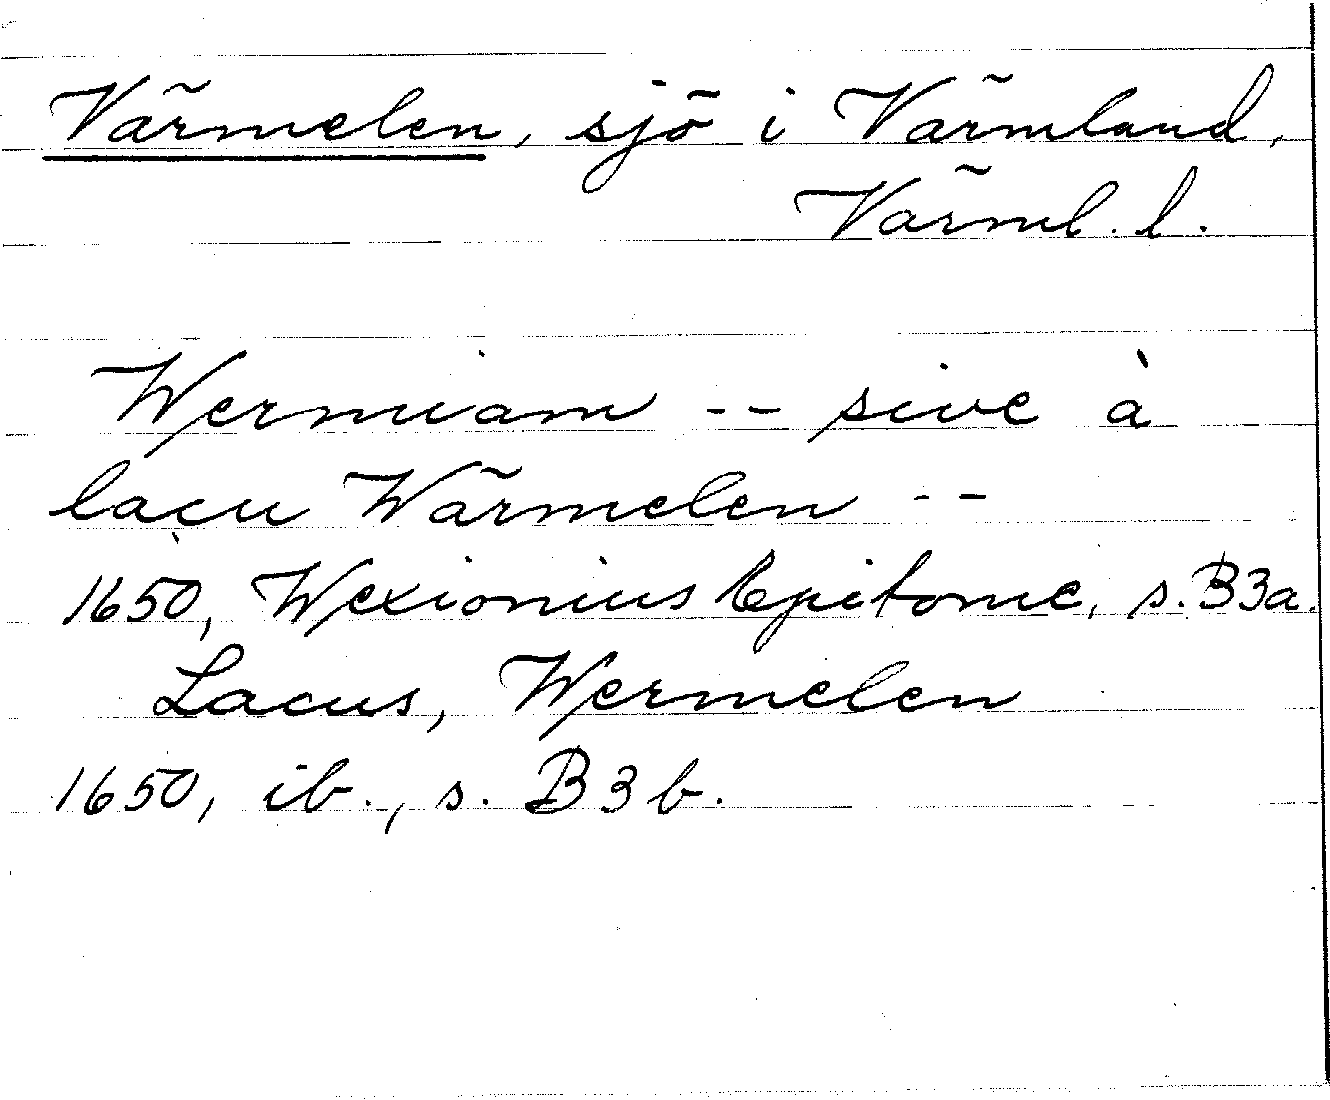 Värmelen, sjö i Värmland,
Värml. l.
Wermiam -- sive à
lacu Wärmelen --
1650, Wexionius Epitome, s. B3a.
Lacus, Wermelen
1650, ib., s. B3b.